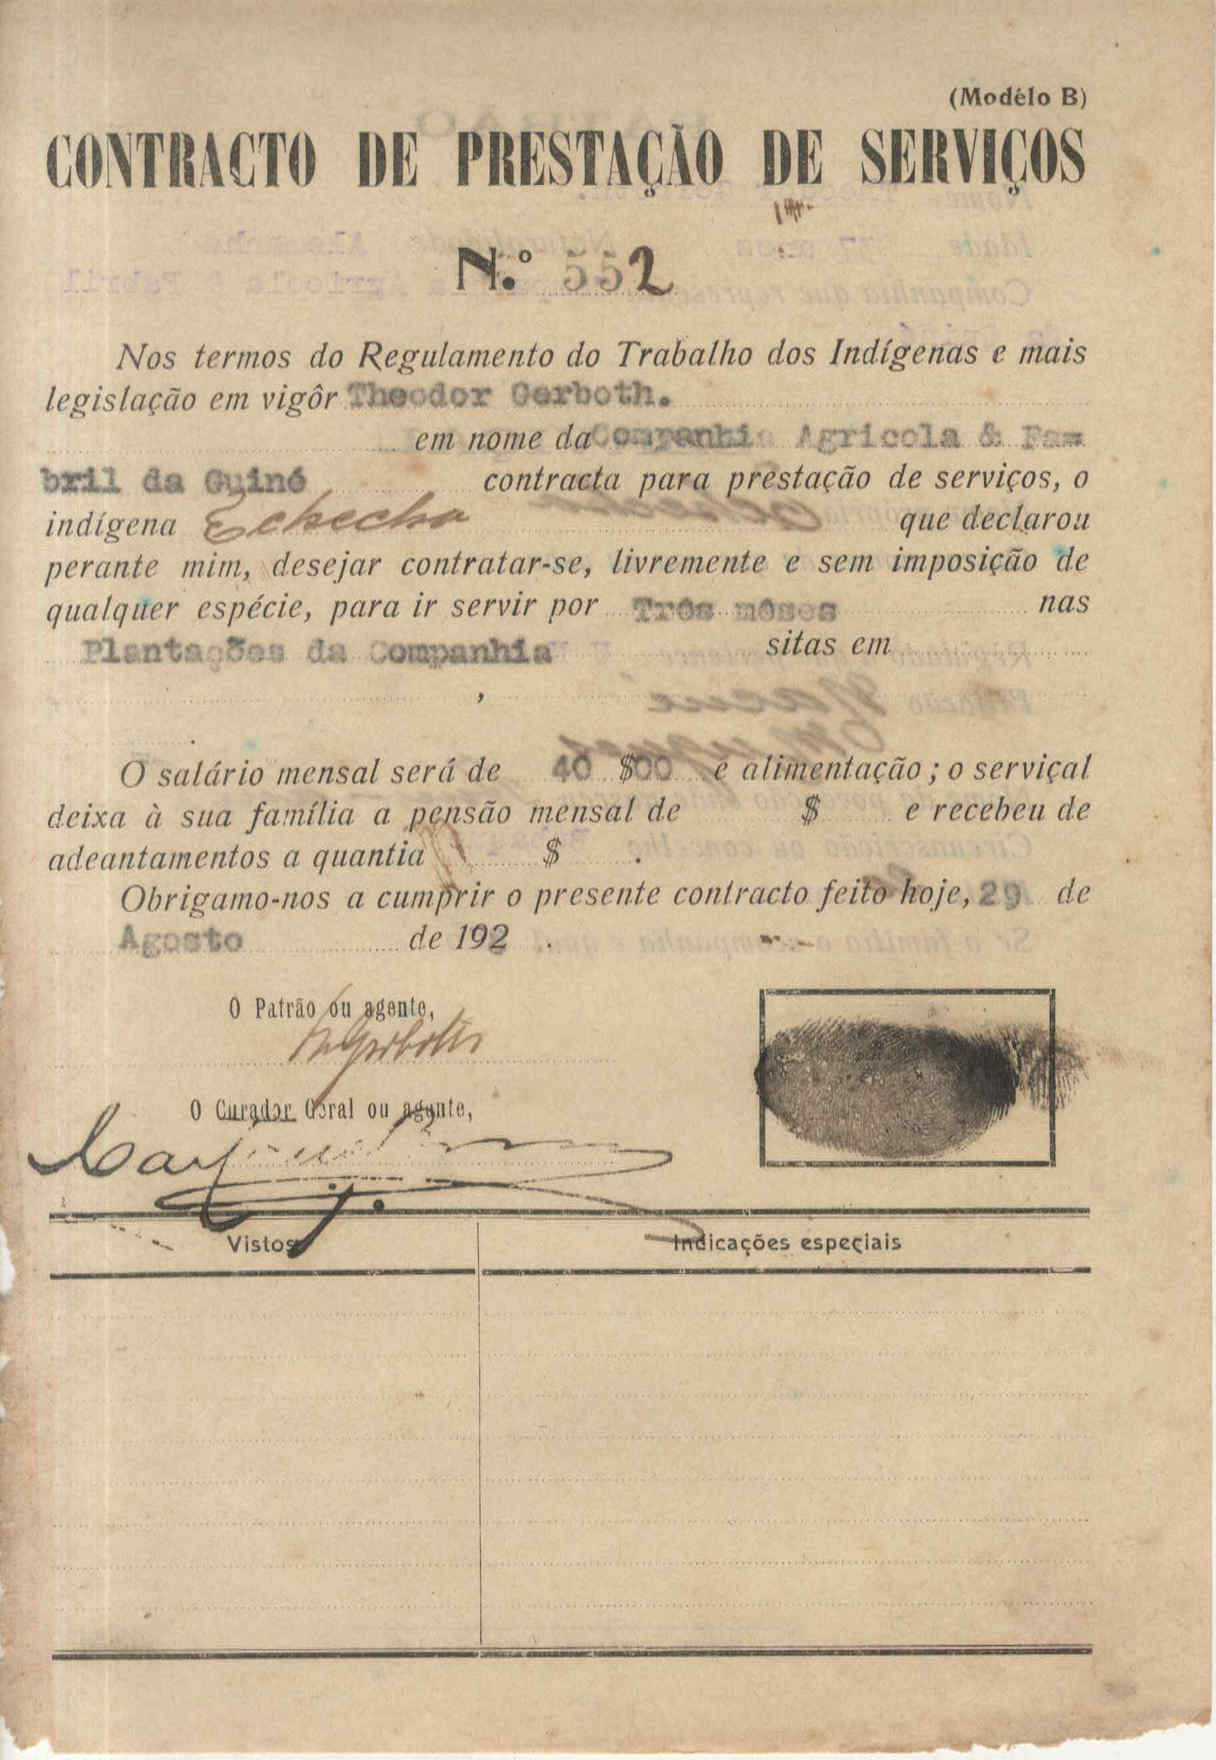 (Modêlo B)
CONTRACTO DE PRESTAÇÃO DE SERVIÇOS
N.º 552
Nos termos do Regulamento do Trabalho dos Indígenas e mais
legislação em vigôr Theodor Gerboth.
em nome da Companhia Agricola & Fa=
bril da Guiné contracta para prestação de serviços, o
indígena que declarou
perante mim, desejar contratar-se, livremente e sem imposição de
qualquer espécie, para ir servir por Três mêses nas
Plantações da Companhia sitas em
,
O salário mensal será de 40 $00 e alimentação; o serviçal
deixa à sua família a pensão mensal de $ e recebeu de
adeantamentos a quantia $ .
Obrigamo-nos a cumprir o presente contracto feito hoje, 29 de
Agosto de 192 .
O Patrão ou agente,
O Curador Geral ou agente,
Vistos Indicações especiais